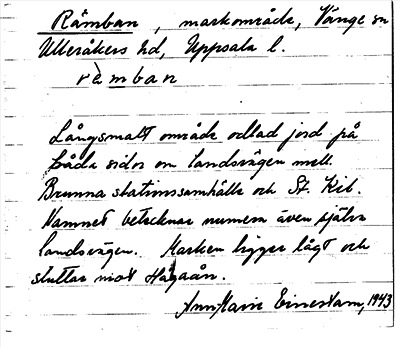 Råmban, markområde, Vänge sn
Ulleråkers hd, Uppsala l.
ràmban
Långsmalt område odlad jord på
båda sidor om landsvägen mell.
Brunna stationssamhälle och St. Kil.
Namnet betecknar numera även själva
landsvägen. Marken ligger lågt och
sluttar mot Hågaån.
AnnMarie Einerstam, 1943